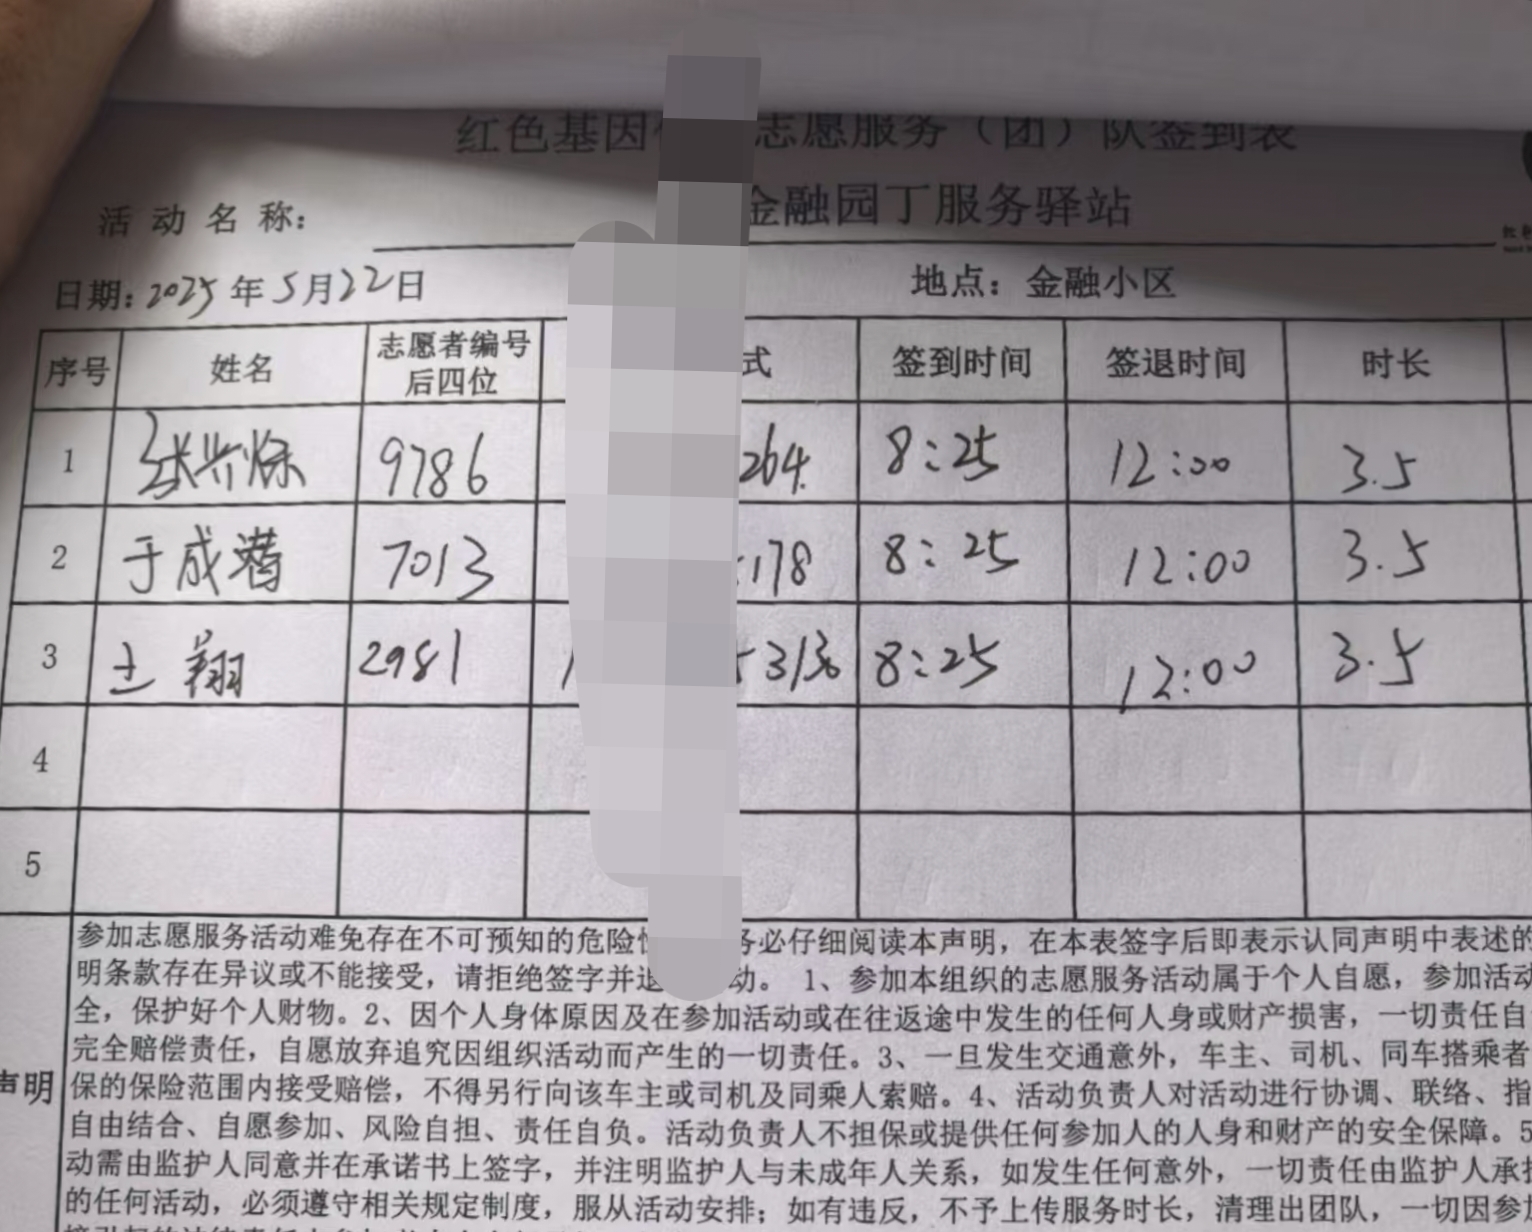 红色基因 志愿服务（团）队签到表
活动名称： 金融园丁服务驿站
日期：2025年5月22日 地点：金融小区
序号 姓名 志愿者编号后四位 式 签到时间 签退时间 时长
1 9786 264. 8:25 12:00 3.5
2 于成 7013 178 8:25 12:00 3.5
3 王翔 2981 8:25 12:00 3.5
4
5
参加志愿服务活动难免存在不可预知的危险 务必仔细阅读本声明，在本表签字后即表示认同声明中表述的
明条款存在异议或不能接受，请拒绝签字并退 动。 1、参加本组织的志愿服务活动属于个人自愿，参加活动
全，保护好个人财物。2、因个人身体原因及在参加活动或在往返途中发生的任何人身或财产损害，一切责任自
完全赔偿责任，自愿放弃追究因组织活动而产生的一切责任。3、一旦发生交通意外，车主、司机、同车搭乘者
声明 保的保险范围内接受赔偿，不得另行向该车主或司机及同乘人索赔。4、活动负责人对活动进行协调、联络、指
自由结合、自愿参加、风险自担、责任自负。活动负责人不担保或提供任何参加人的人身和财产的安全保障。5
动需由监护人同意并在承诺书上签字，并注明监护人与未成年人关系，如发生任何意外，一切责任由监护人承担
的任何活动，必须遵守相关规定制度，服从活动安排；如有违反，不予上传服务时长，清理出团队，一切因参加